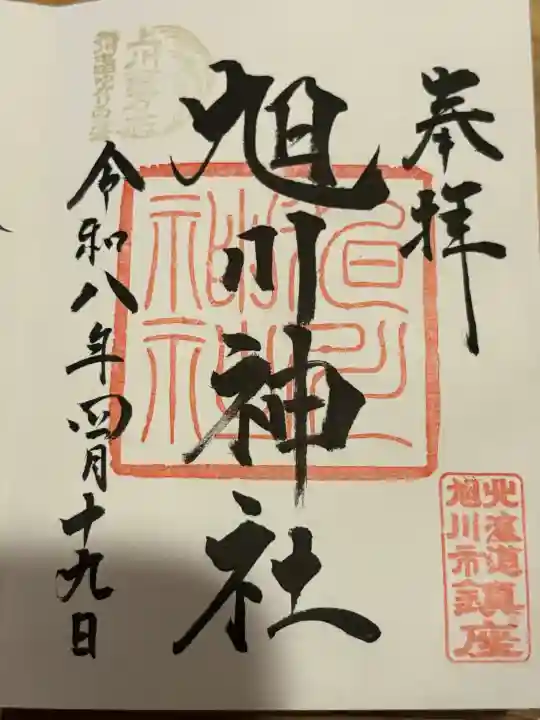 奉拝
旭川神社
令和八年四月十九日
北海道
旭川市
鎮座